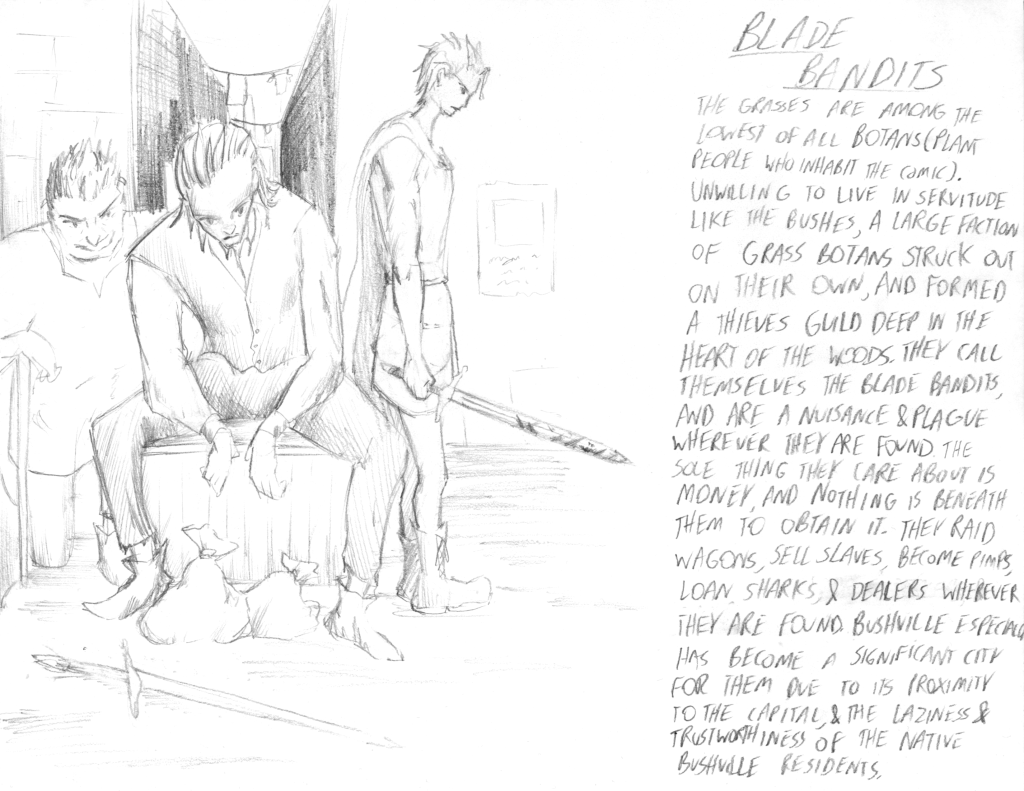 BLADE
BANDITS
THE GRASSES ARE AMONG THE
LOWEST OF ALL BOTANS (PLANT
PEOPLE WHO INHABIT THE COMIC).
UNWILLING TO LIVE IN SERVITUDE
LIKE THE BUSHES, A LARGE FACTION
OF GRASS BOTANS STRUCK OUT
ON THEIR OWN, AND FORMED
A THIEVES GUILD DEEP IN THE
HEART OF THE WOODS. THEY CALL
THEMSELVES THE BLADE BANDITS,
AND ARE A NUISANCE & PLAGUE
WHEREVER THEY ARE FOUND. THE
SOLE THING THEY CARE ABOUT IS
MONEY, AND NOTHING IS BENEATH
THEM TO OBTAIN IT. THEY RAID
WAGONS, SELL SLAVES, BECOME PIMPS,
LOAN SHARKS, & DEALERS WHEREVER
THEY ARE FOUND. BUSHVILLE ESPECIALLY
HAS BECOME A SIGNIFICANT CITY
FOR THEM DUE TO ITS PROXIMITY
TO THE CAPITAL, & THE LAZINESS &
TRUSTWORTHINESS OF THE NATIVE
BUSHVILLE RESIDENTS.